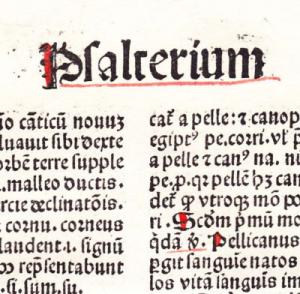 Psalterium
o cãticũ nouuz
luauit sibi dexte
orbẽ terre supple
. malleo ductis.
rcie ꝛclinatõis.
ꝛ cornu. corneus
laudent .i. signũ
ꝙ rep̃sentabunt
.si.sum.su.
cat̃ a pelle: ⁊ canop
egiptꝰ pe.corri.vl' p
a pelle ⁊ canꝰ na. nu
pe.ꝑ.qꝛ pellẽ hꝫ can
det̃ ꝙ vtroqꝫ mõ po
ri. Scd̃m pͥmũ mo
q̃dã ꝟ. Pellicanus
ꝑgit sanguine natos
los vitã sanguĩs im